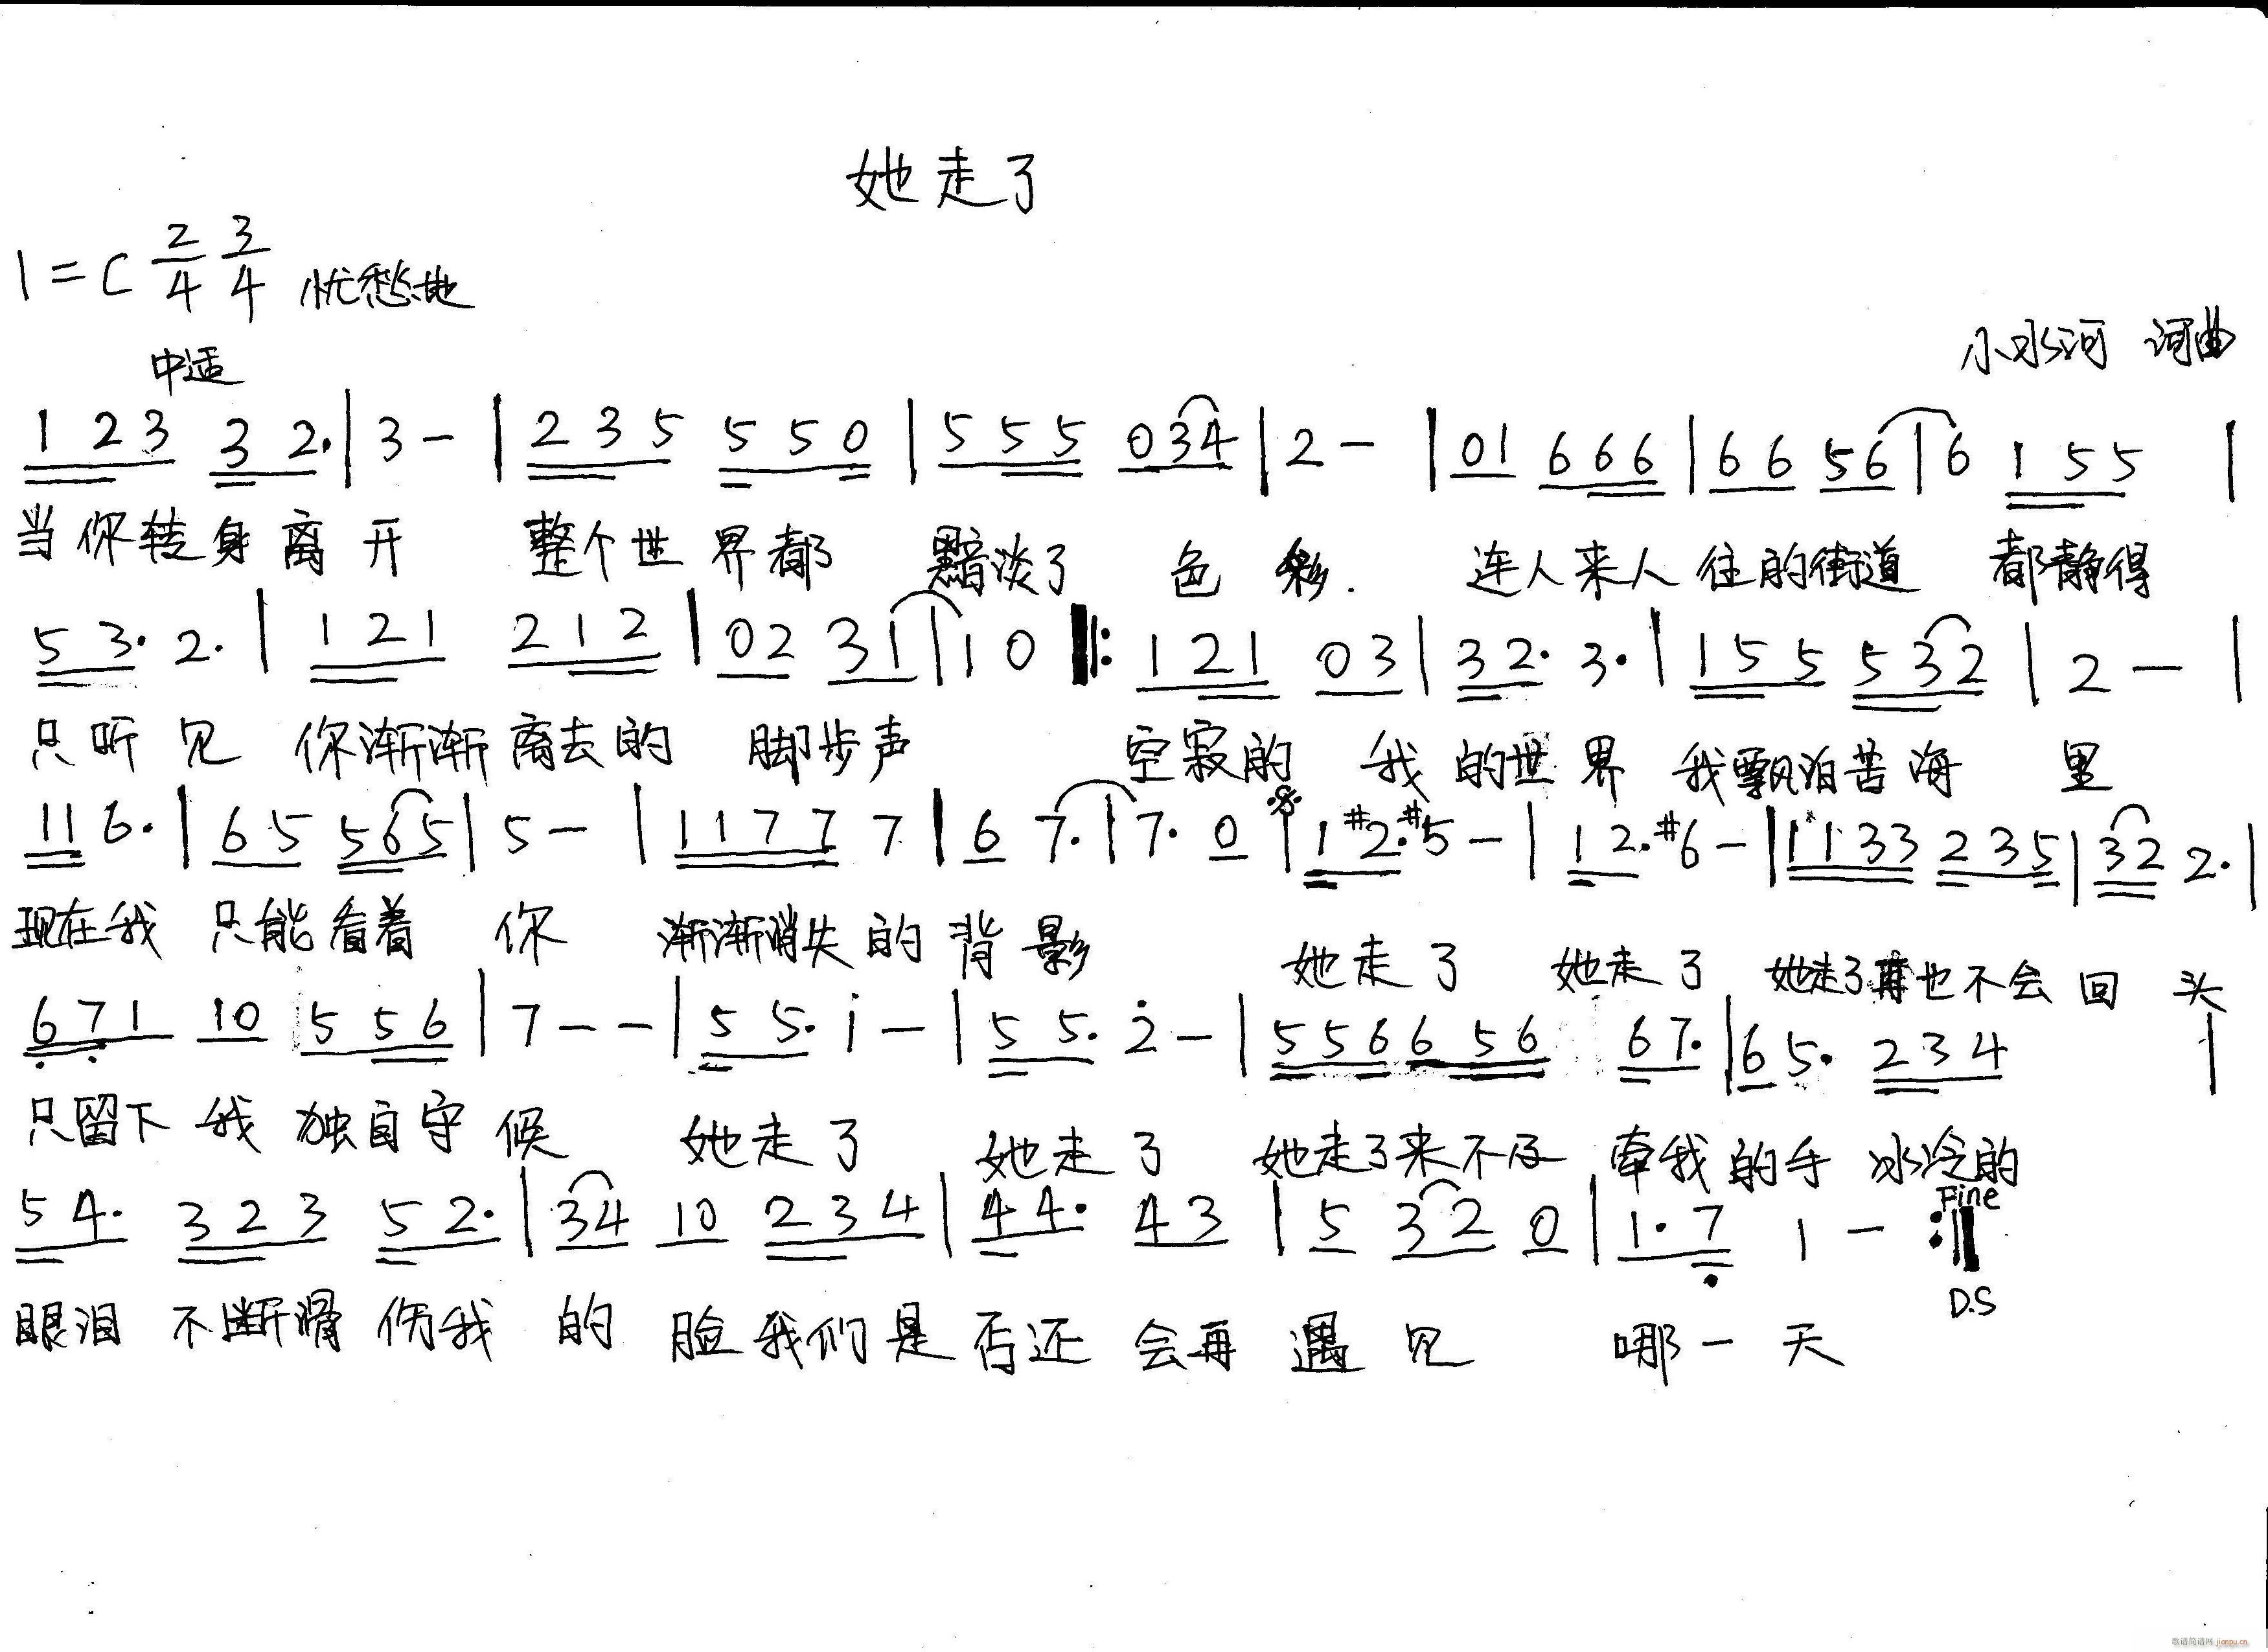 她走了
1=C 2/4 3/4 忧愁地
中速
小水河 词曲
1 2 3 3 2. | 3 - | 2 3 5 5 5 0 | 5 5 5 0 3 4 | 2 - | 0 1 6 6 6 | 6 6 5 6 | 6 1 5 5 |
当你转身离开 整个世界都 黯淡了 色彩. 连人来人往的街道 都静得
5 3. 2. | 1 2 1 2 1 2 | 0 2 3 1 | 1 0 ‖: 1 2 1 0 3 | 3 2. 3. | 1 5 5 5 3 2 | 2 - |
只听见 你渐渐离去的 脚步声 空寂的 我的世界 我飘泊苦海 里
1 1 6. | 6 5 5 6 5 | 5 - | 1 1 7 7 7 | 6 7. | 7. 0 𝄋 | 1 #2. #5 - | 1 2. #6 - | 1 1 3 3 2 3 5 | 3 2 2. |
现在我 只能看着 你 渐渐消失的背影 她走了 她走了 她走了再也不会回 头
6̣ 7̣ 1 1 0 5 5 6 | 7 - - | 5 5. i - | 5 5. 2̇ - | 5 5 6 6 5 6 6 7. | 6 5. 2 3 4 |
只留下 我 独自守候 她走了 她走了 她走了来不及 牵我的手 冰冷的
5 4. 3 2 3 5 2. | 3 4 1 0 2 3 4 | 4 4. 4 3 | 5 3 2 0 | 1. 7̣ 1 - :‖ Fine
D.S
眼泪 不断滑 伤我 的 脸我们是否还 会再 遇见 哪一天
歌谱简谱网 jianpu.cn